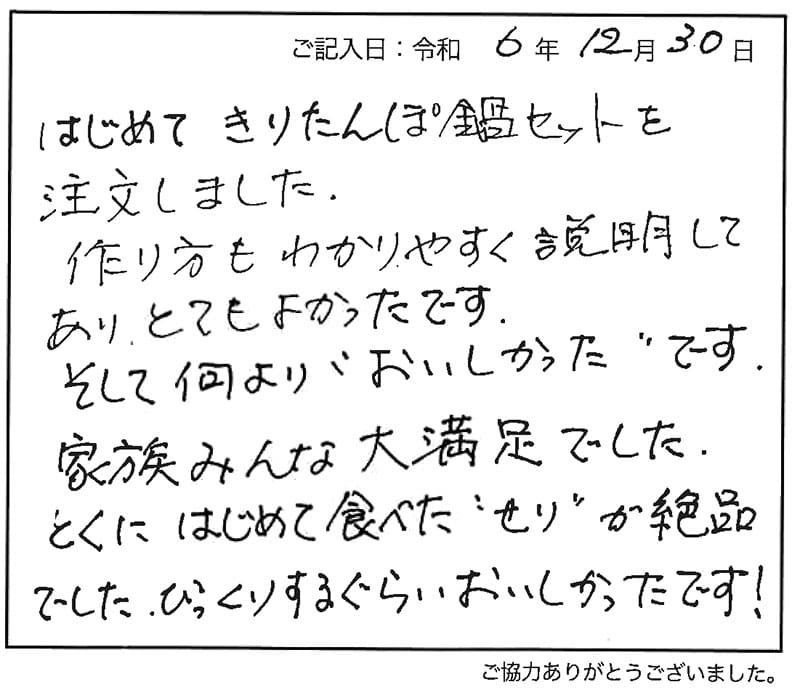 ご記入日：令和 6年 12月 30日
はじめて きりたんぽ鍋セットを
注文しました.
作り方も わかりやすく 説明して
あり、とてもよかったです.
そして 何より "おいしかった" です.
家族みんな 大満足でした.
とくに はじめて食べた "せり" が 絶品
でした.びっくりするぐらいおいしかったです!
ご協力ありがとうございました。